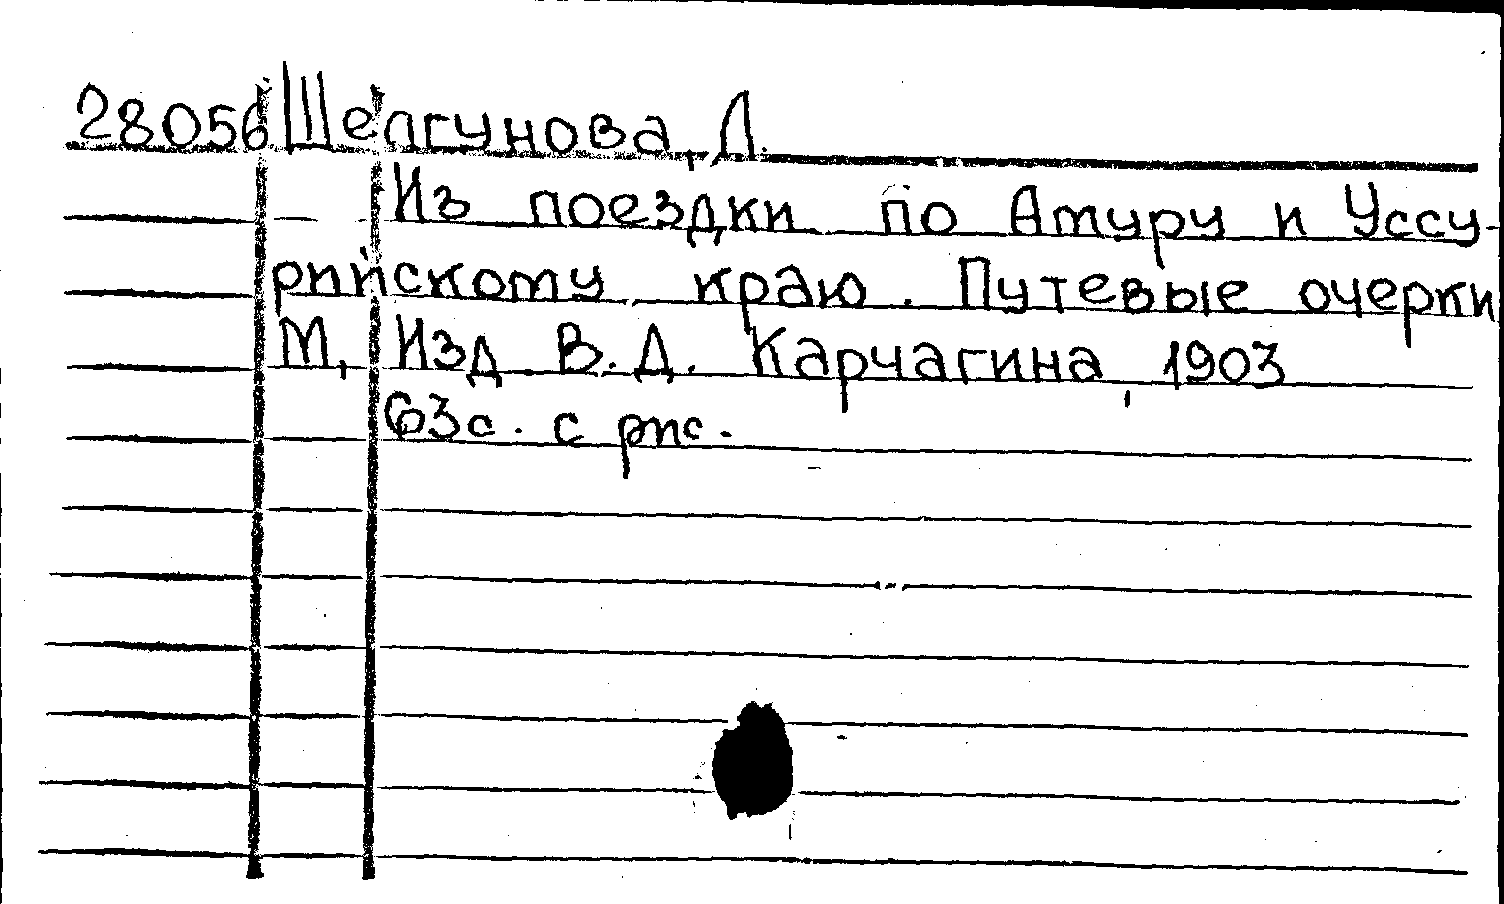 28056 Шелгунова, Л.
Из поездки по Амуру и Уссу-
рийскому краю. Путевые очерки
М, Изд В. Д. Карчагина, 1903
63с. с рис.